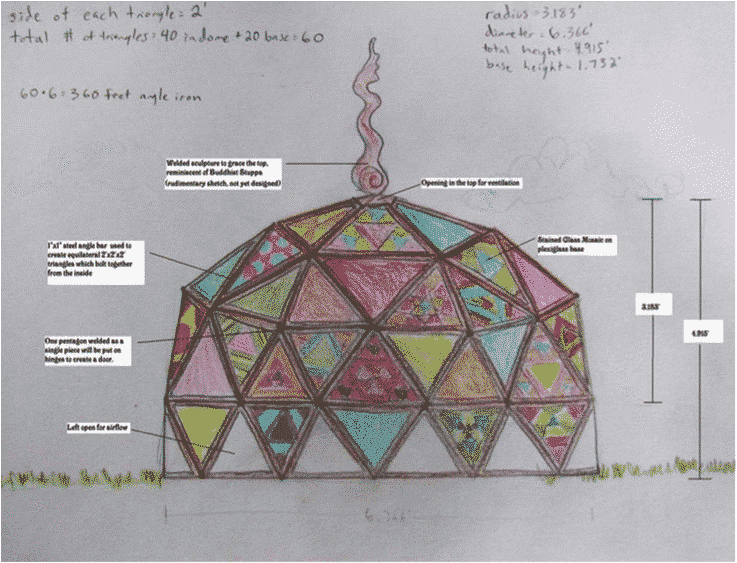 side of each triangle = 2'
total # of triangles = 40 in dome + 20 base = 60
60 • 6 = 360 feet angle iron
radius = 3.183'
diameter = 6.366'
total height = 4.915'
base height = 1.732'
Welded sculpture to grace the top,
reminiscent of Buddhist Stuppa
(rudimentary sketch, not yet designed)
Opening in the top for ventilation
1"x1" steel angle bar used to
create equilateral 2'x2'x2'
triangles which bolt together
from the inside
Stained Glass Mosaic on
plexiglass base
3.183'
4.915'
One pentagon welded as a
single piece will be put on
hinges to create a door.
Left open for airflow
6.366'